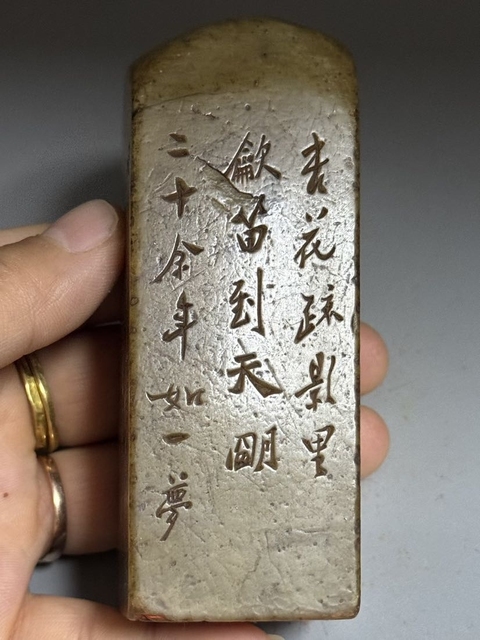 杏花疎影里
龡笛到天朙
二十余年如一夢